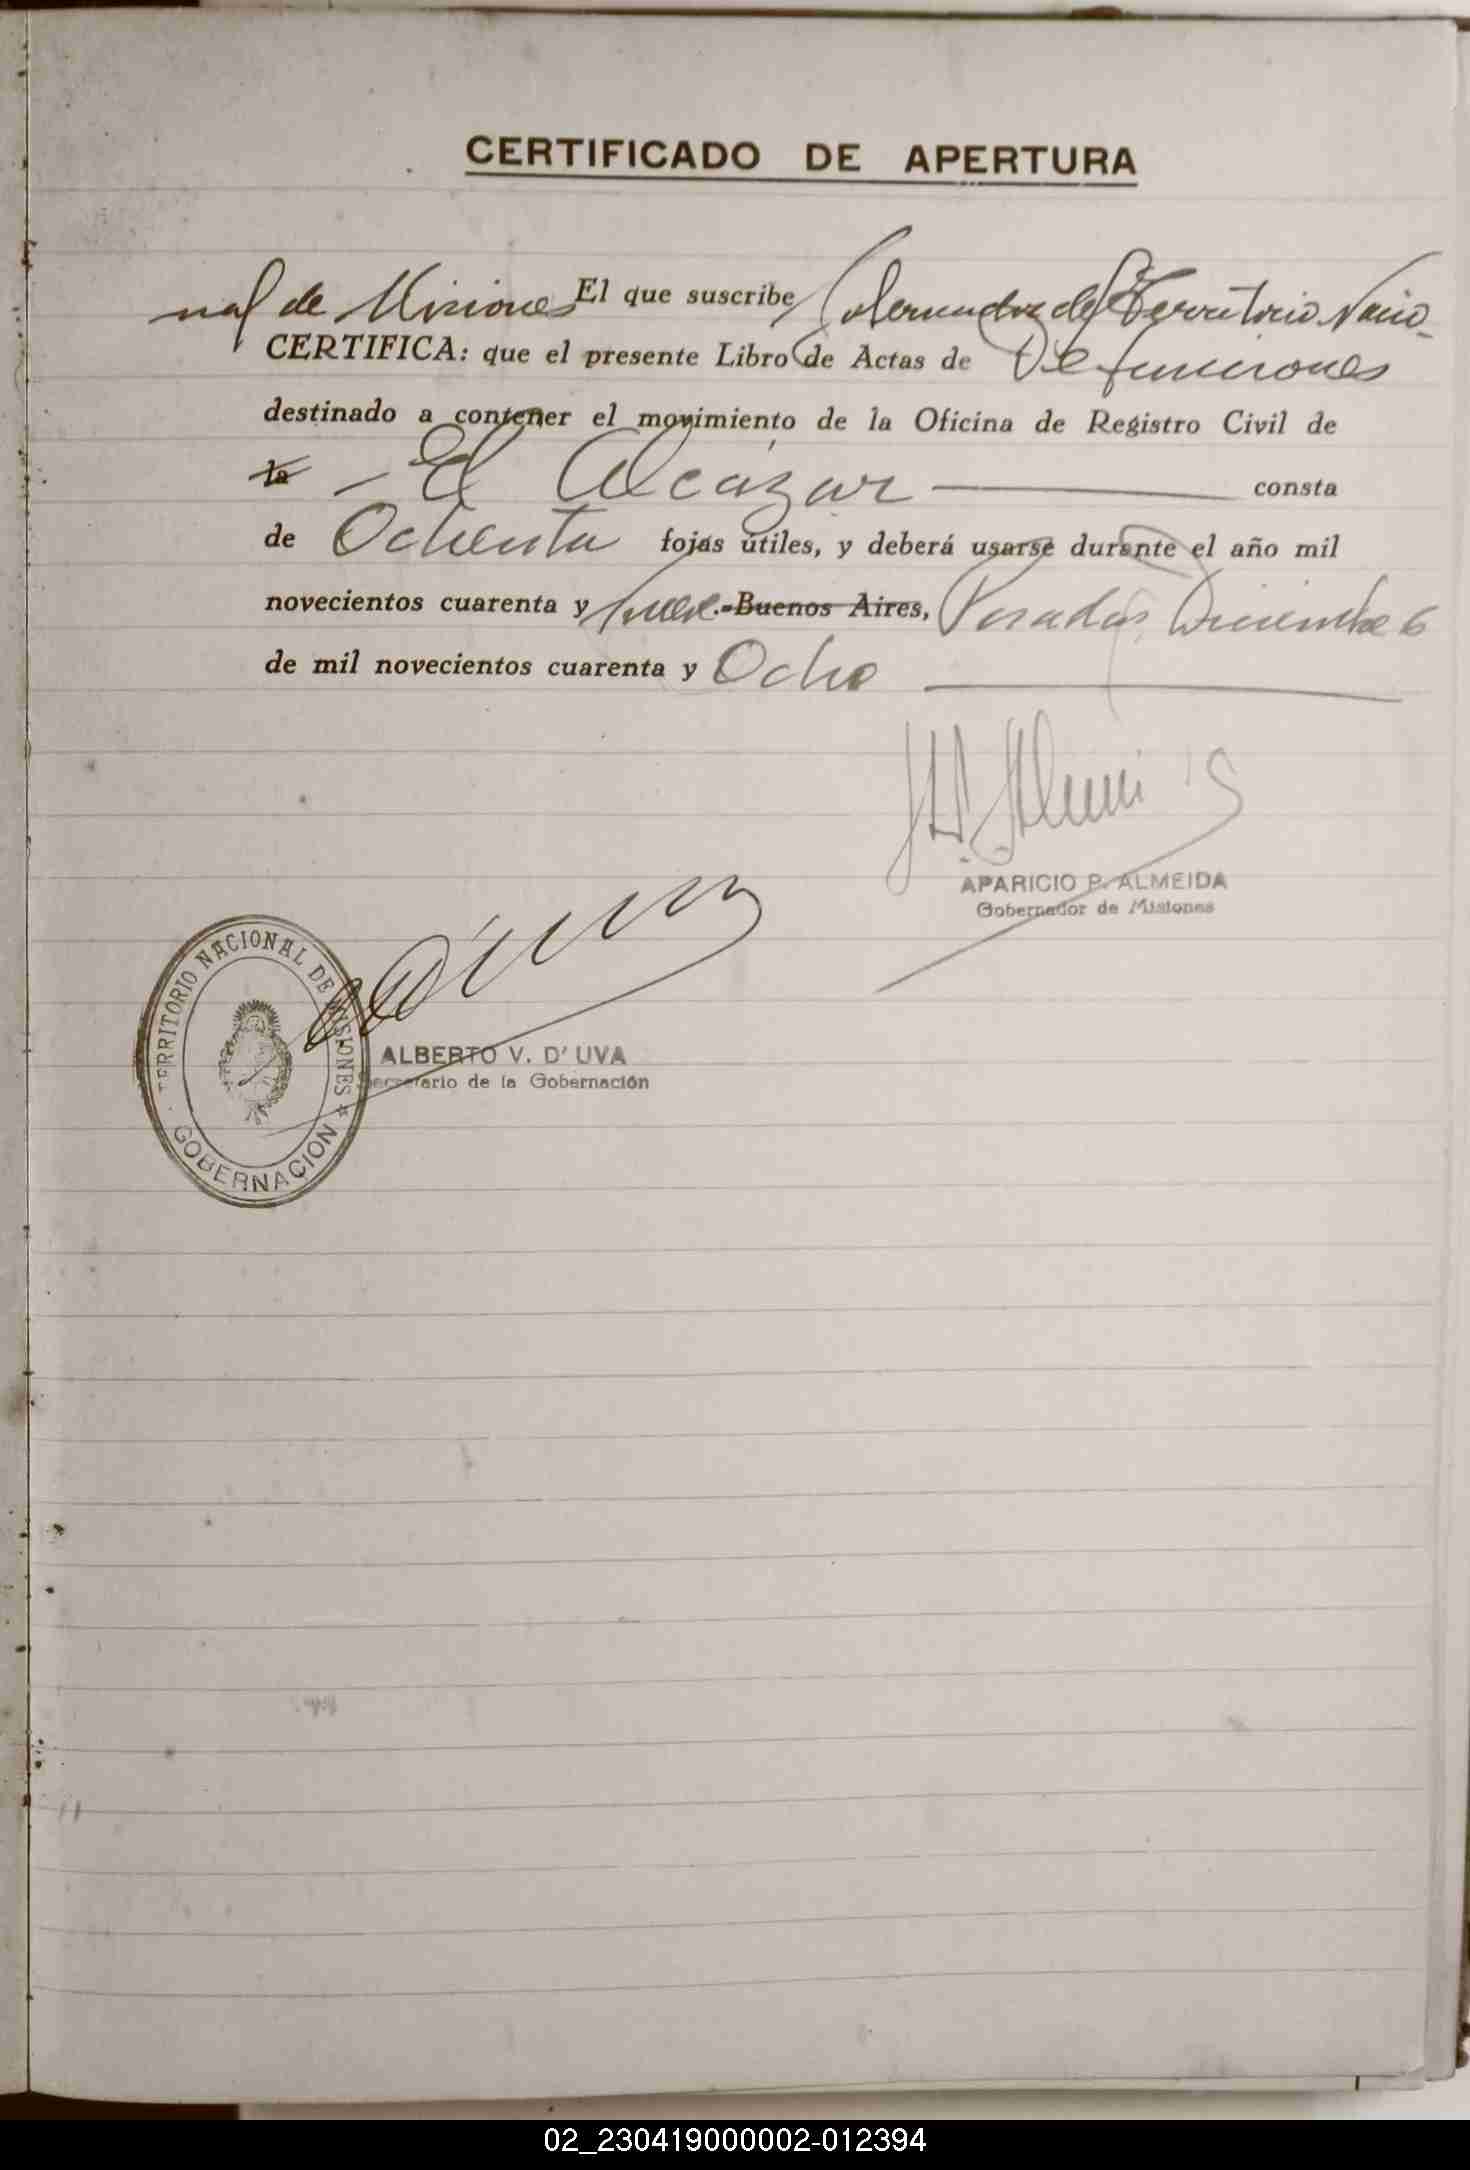 CERTIFICADO DE APERTURA
El que suscribe Gobernador del Territorio Nacio-
nal de Misiones
CERTIFICA: que el presente Libro de Actas de Defunciones
destinado a contener el movimiento de la Oficina de Registro Civil de
la - El Alcázar consta
de Ochenta fojas útiles, y deberá usarse durante el año mil
novecientos cuarenta y nueve.-Buenos Aires, Posadas, Diciembre 6
de mil novecientos cuarenta y Ocho
APARICIO P. ALMEIDA
Gobernador de Misiones
TERRITORIO NACIONAL DE MISIONES
GOBERNACION
ALBERTO V. D' UVA
Secretario de la Gobernación
02_230419000002-012394